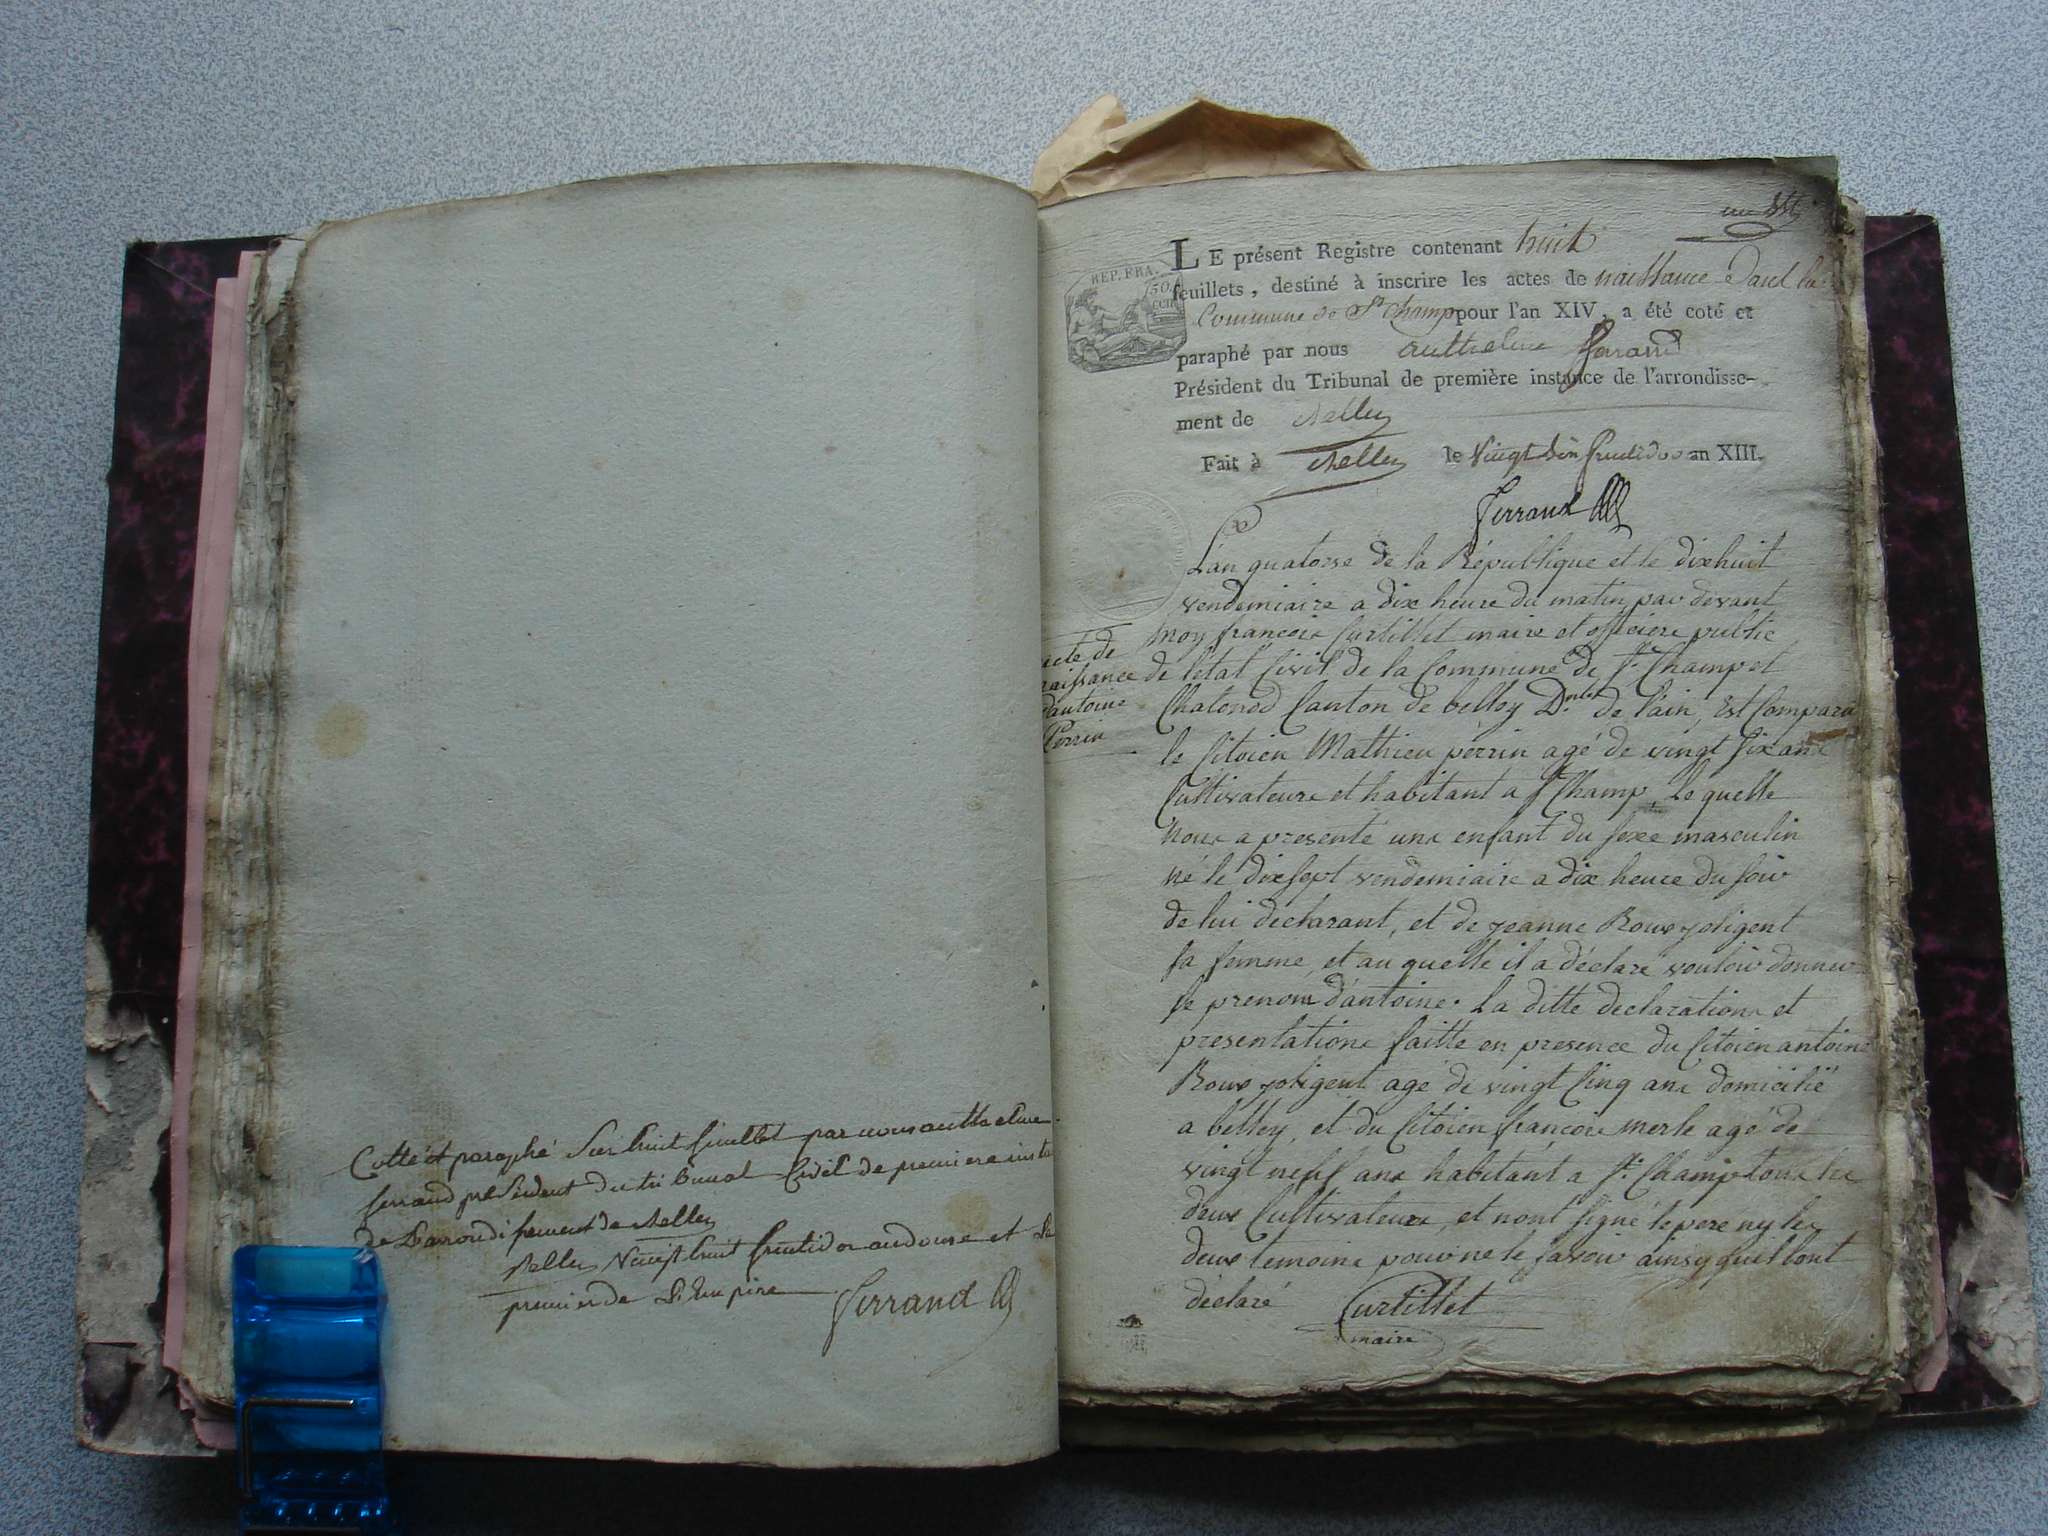 Cotté et paraphé Sur huit feuillet par nous anthelme
ferrand président du tribunal Civil de premiere insta
de L'arrondissement de Belley
Belley Vingt huit fructidor an douze et le
premier de L'Empire
Ferrand
un
LE présent Registre contenant huit
feuillets, destiné à inscrire les actes de naissance dans la
Commune de St Champ pour l'an XIV, a été coté et
paraphé par nous anthelme ferrand
Président du Tribunal de première instance de l'arrondisse-
ment de Belley
Fait à Belley le Vingt fructidor an XIII.
REP. FRA.
50
CEN
Ferrand
L'an quatorse de la République et le dixhuit
vendemiaire a dix heure du matin par devant
moy francois Curtillet maire et officiere public
de l'état Civil de la Commune de St. Champ et
Chatonod Canton de belley D.ment de l'ain, Est Comparu
le Citoien Mathieu perrin agé de vingt six ans
Cultivateure et habitant a St Champ, Le quelle
Nous a presenté une enfant du sexe masculin
né le dixsept vendemiaire a dix heure du soir
de lui declarant, et de jeanne Roux joligent
sa femme, et au quelle il a déclaré vouloir donner
le prenom d'antoine. La ditte declaration et
presentation faitte en presence du Citoien antoine
Roux joligent agé de vingt Cinq ans domicilié
a belley, et du Citoien francois merle agé de
vingt neuf ans habitant a St. Champ tous les
deux Cultivateurs, et n'ont signé le pere ny les
deux temoins pour ne le savoir ainsy quil l'ont
déclaré Curtillet
maire
acte de
naissance
d'antoine
Perrin